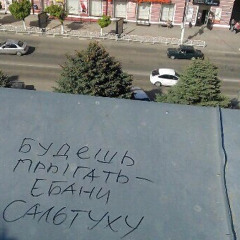 будешь
прыгать-
ебани
сальтуху